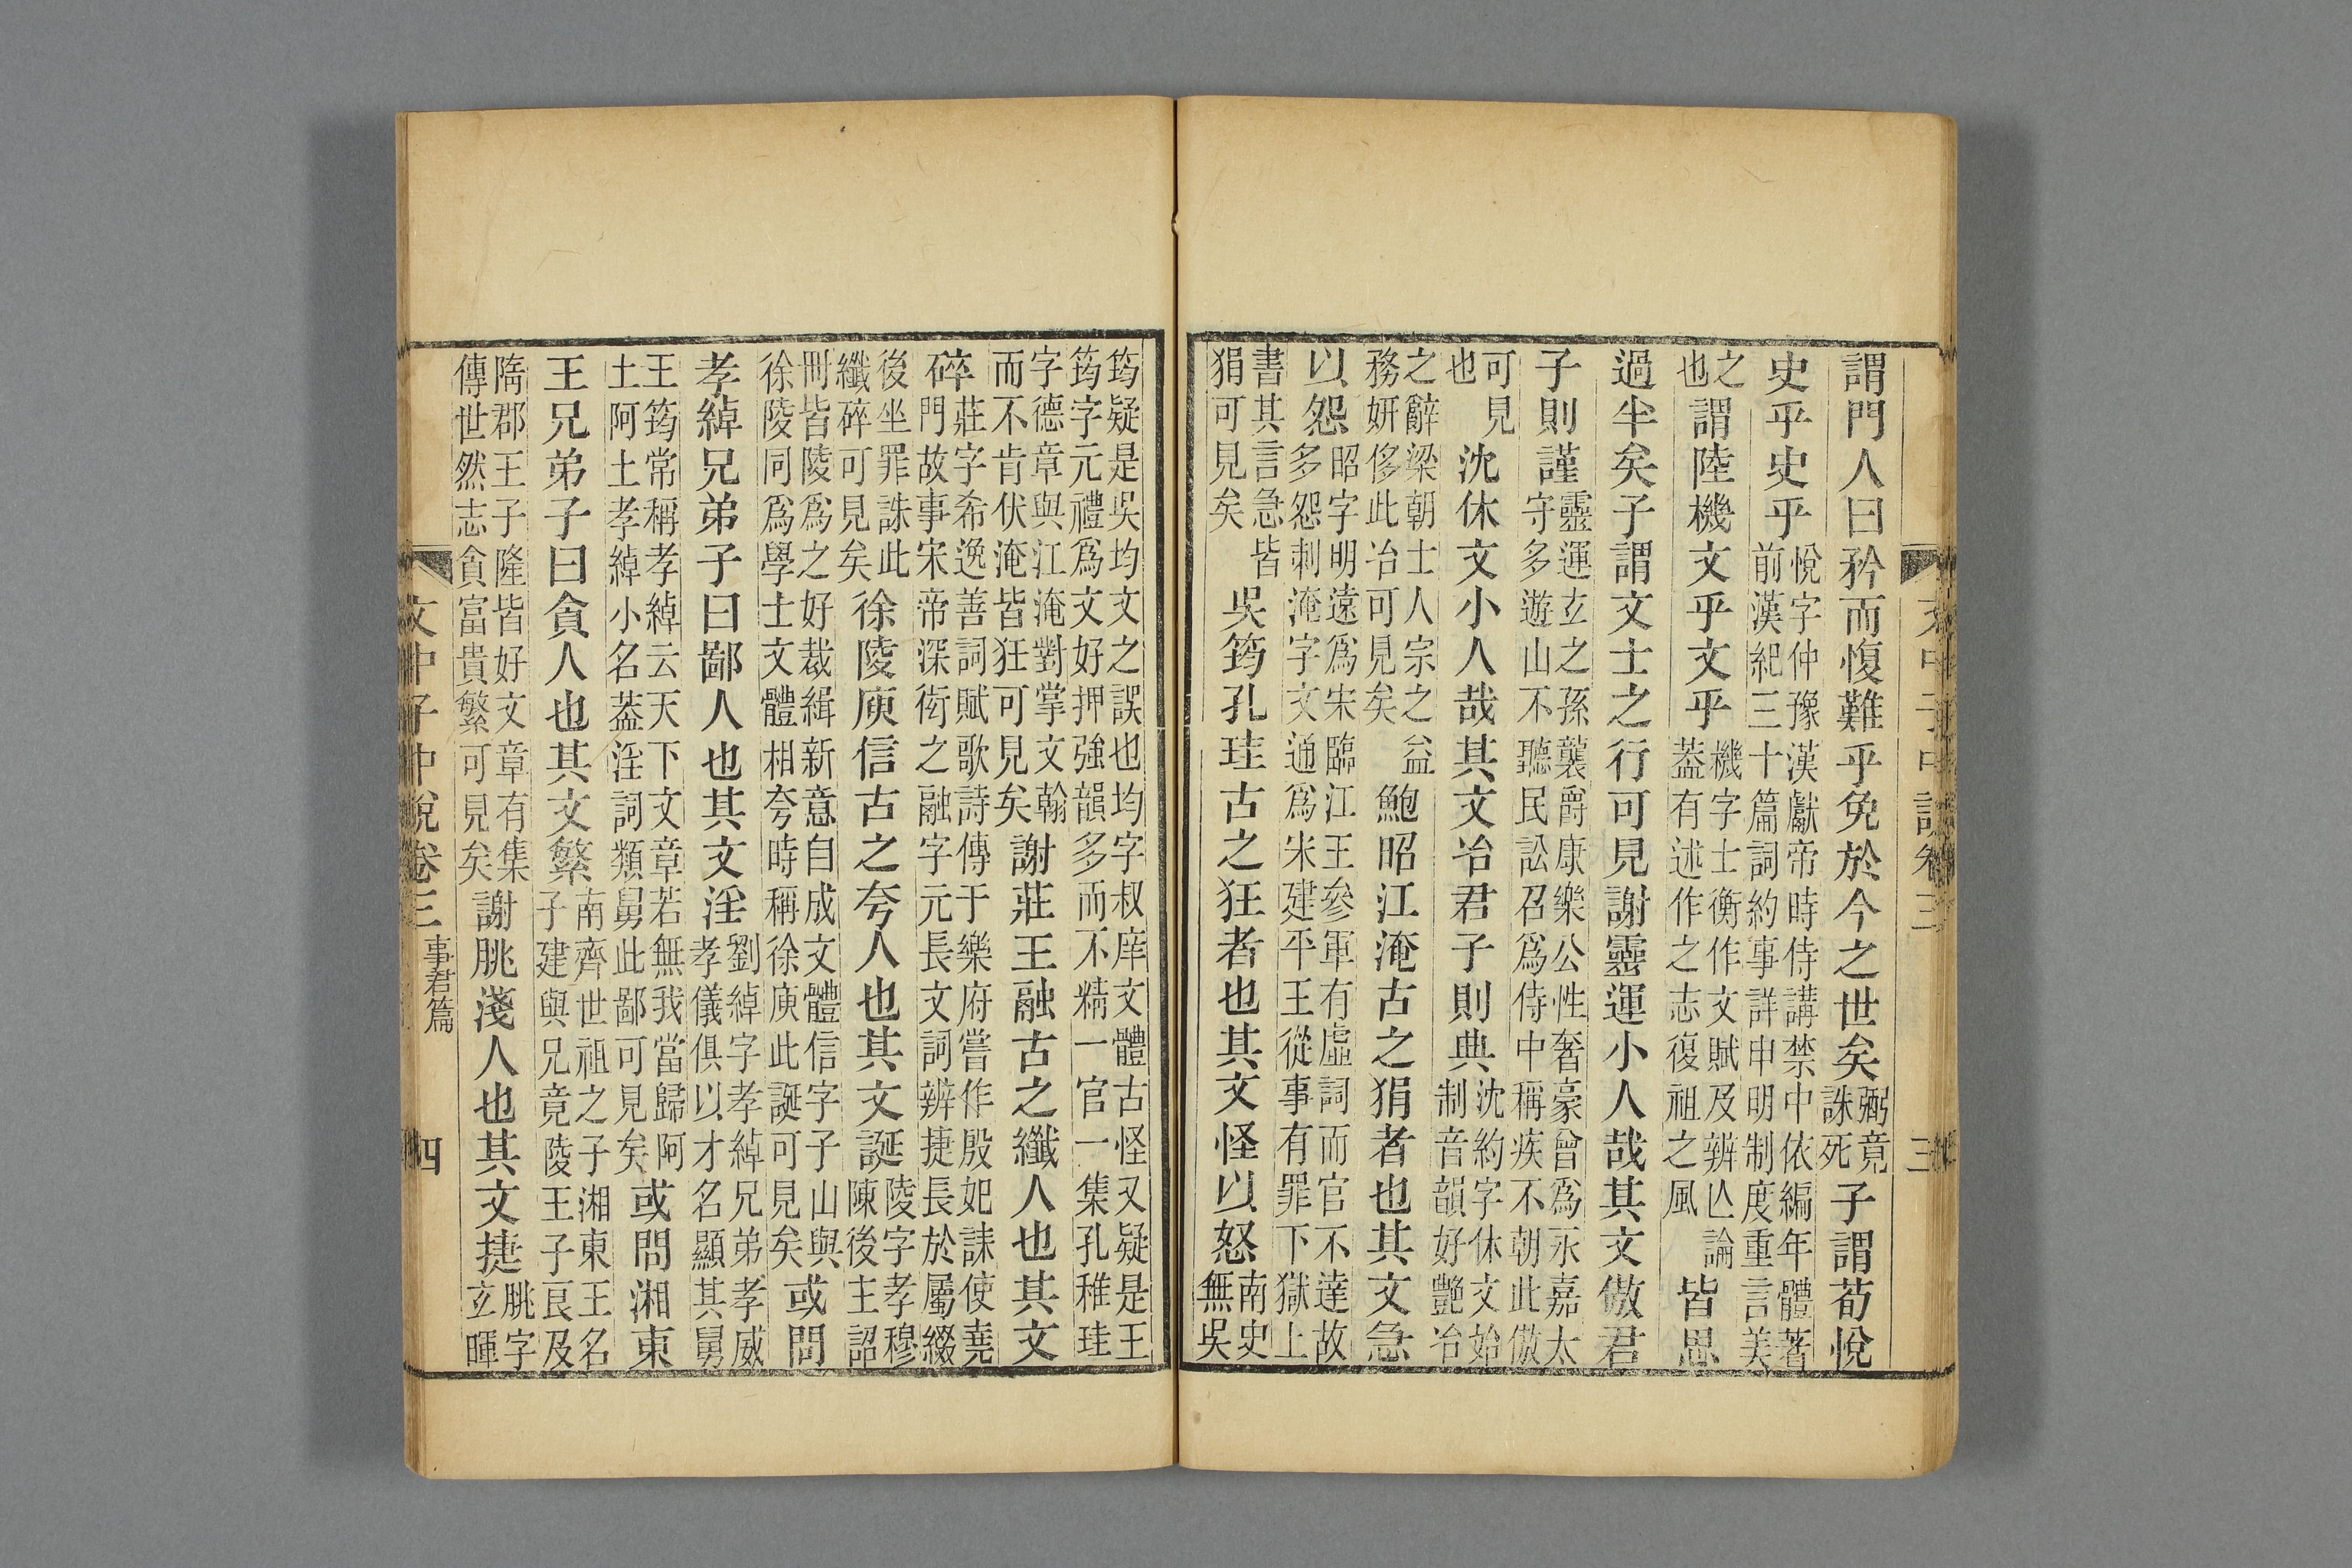 文中子中說卷三 三
謂門人曰矜而愎難乎免於今之世矣弼竟誅死子謂荀悅
史乎史乎悅字仲豫漢獻帝時侍講禁中依編年體著前漢紀三十篇詞約事詳申明制度重言美
之也謂陸機文乎文乎機字士衡作文賦及辨亾論葢有述作之志復祖之風皆思
過半矣子謂文士之行可見謝靈運小人哉其文傲君
子則謹靈運玄之孫襲爵康樂公性奢豪曾爲永嘉太守多遊山不聽民訟召爲侍中稱疾不朝此傲
可見也沈休文小人哉其文冶君子則典沈約字休文始制音韻好艷冶
之辭梁朝士人宗之益務妍侈此冶可見矣鮑昭江淹古之狷者也其文急
以怨昭字明遠爲宋臨江王參軍有虛詞而官不達故多怨刺淹字文通爲宋建平王從事有罪下獄上
書其言急皆狷可見矣吳筠孔珪古之狂者也其文怪以怒南史無吳
筠疑是吳均文之誤也均字叔庠文體古怪又疑是王筠字元禮爲文好押強韻多而不精一官一集孔稚珪
字德章與江淹對掌文翰而不肯伏淹皆狂可見矣謝莊王融古之纖人也其文
碎莊字希逸善詞賦歌詩傳于樂府嘗作殷妃誄使堯門故事宋帝深銜之融字元長文詞辨捷長於屬綴
後坐罪誅此纖碎可見矣徐陵庾信古之夸人也其文誕陵字孝穆陳後主詔
冊皆陵爲之好裁緝新意自成文體信字子山與徐陵同爲學士文體相夸時稱徐庾此誕可見矣或問
孝綽兄弟子曰鄙人也其文淫劉綽字孝綽兄弟孝威孝儀俱以才名顯其舅
王筠常稱孝綽云天下文章若無我當歸阿土阿土孝綽小名葢淫詞類舅此鄙可見矣或問湘東
王兄弟子曰貪人也其文繁南齊世祖之子湘東王名子建與兄竟陵王子良及
隋郡王子隆皆好文章有集傳世然志貪富貴繁可見矣謝朓淺人也其文捷朓字玄暉
文中子中說卷三 事君篇 四